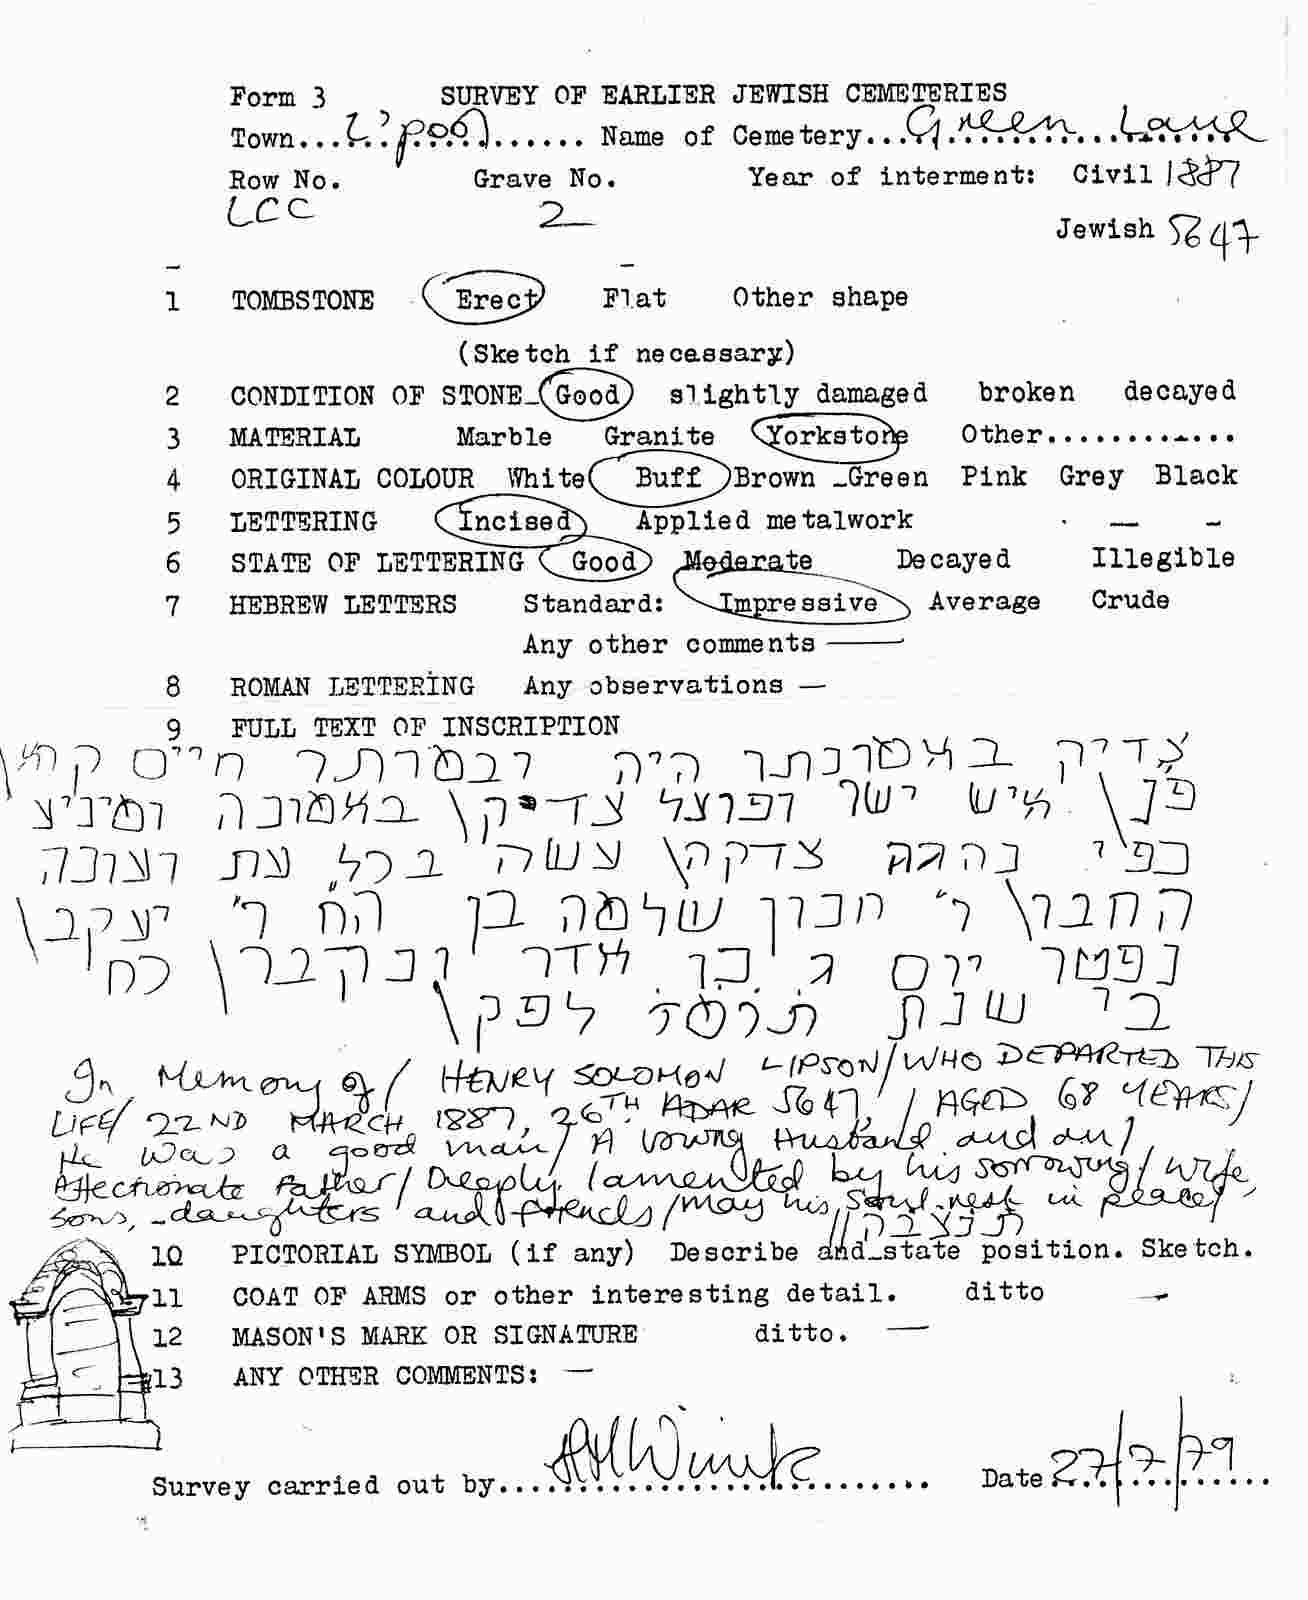 Form 3 SURVEY OF EARLIER JEWISH CEMETERIES
Town...L'pool...... Name of Cemetery...Green Lane
Row No. Grave No. Year of interment: Civil 1887
LCC 2
Jewish 5647
1 TOMBSTONE Erect Flat Other shape
(Sketch if necessary)
2 CONDITION OF STONE Good slightly damaged broken decayed
3 MATERIAL Marble Granite Yorkstone Other............
4 ORIGINAL COLOUR White Buff Brown Green Pink Grey Black
5 LETTERING Incised Applied metalwork
6 STATE OF LETTERING Good Moderate Decayed Illegible
7 HEBREW LETTERS Standard: Impressive Average Crude
Any other comments —
8 ROMAN LETTERING Any observations —
9 FULL TEXT OF INSCRIPTION
צדיק באמונתו היה ובמותו חיים
פנ\ איש ישר ופועל צדיק\ באמונה
כפי צדקה\ עשה בכל עת ועונה
החבר\ ר' שלמה בן ר' יעקב\
נפטר יום ג כו אדר ונקבר\ כח
בו שנת תרמז לפק\
In Memory of/ HENRY SOLOMON LIPSON/ WHO DEPARTED THIS
LIFE/ 22ND MARCH 1887, 26TH ADAR 5647,/ AGED 68 YEARS/
He was a good man/ A loving Husband and an/
Affectionate Father/ Deeply lamented by his sorrowing/ wife,
sons, daughters and friends/ may his soul rest in peace/
//תנצבה
10 PICTORIAL SYMBOL (if any) Describe and state position. Sketch.
11 COAT OF ARMS or other interesting detail. ditto —
12 MASON'S MARK OR SIGNATURE ditto. —
13 ANY OTHER COMMENTS: —
Survey carried out by.............................. Date 27/7/79